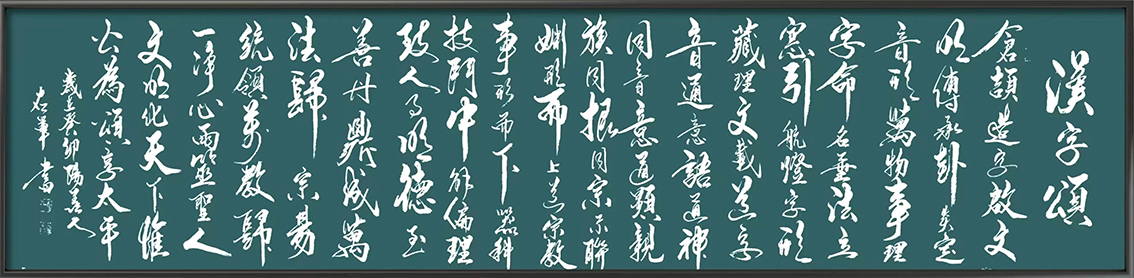 漢字頌
倉頡造字啟文
明傳承卦爻定
音形萬物事理
字命名垂法立
憲引航燈字形
藏理文載道字
音通意語道神
同音意道顯親
族同根同宗聯
姻形而上道宗教
事形而下器科
技鬥中解偏理
致人明德玉
善丹鼎成萬
法歸宗易
統領萬教歸
一淨心兩聖人
文明化天下惟
公為頌享太平
歲在癸卯陽春
書